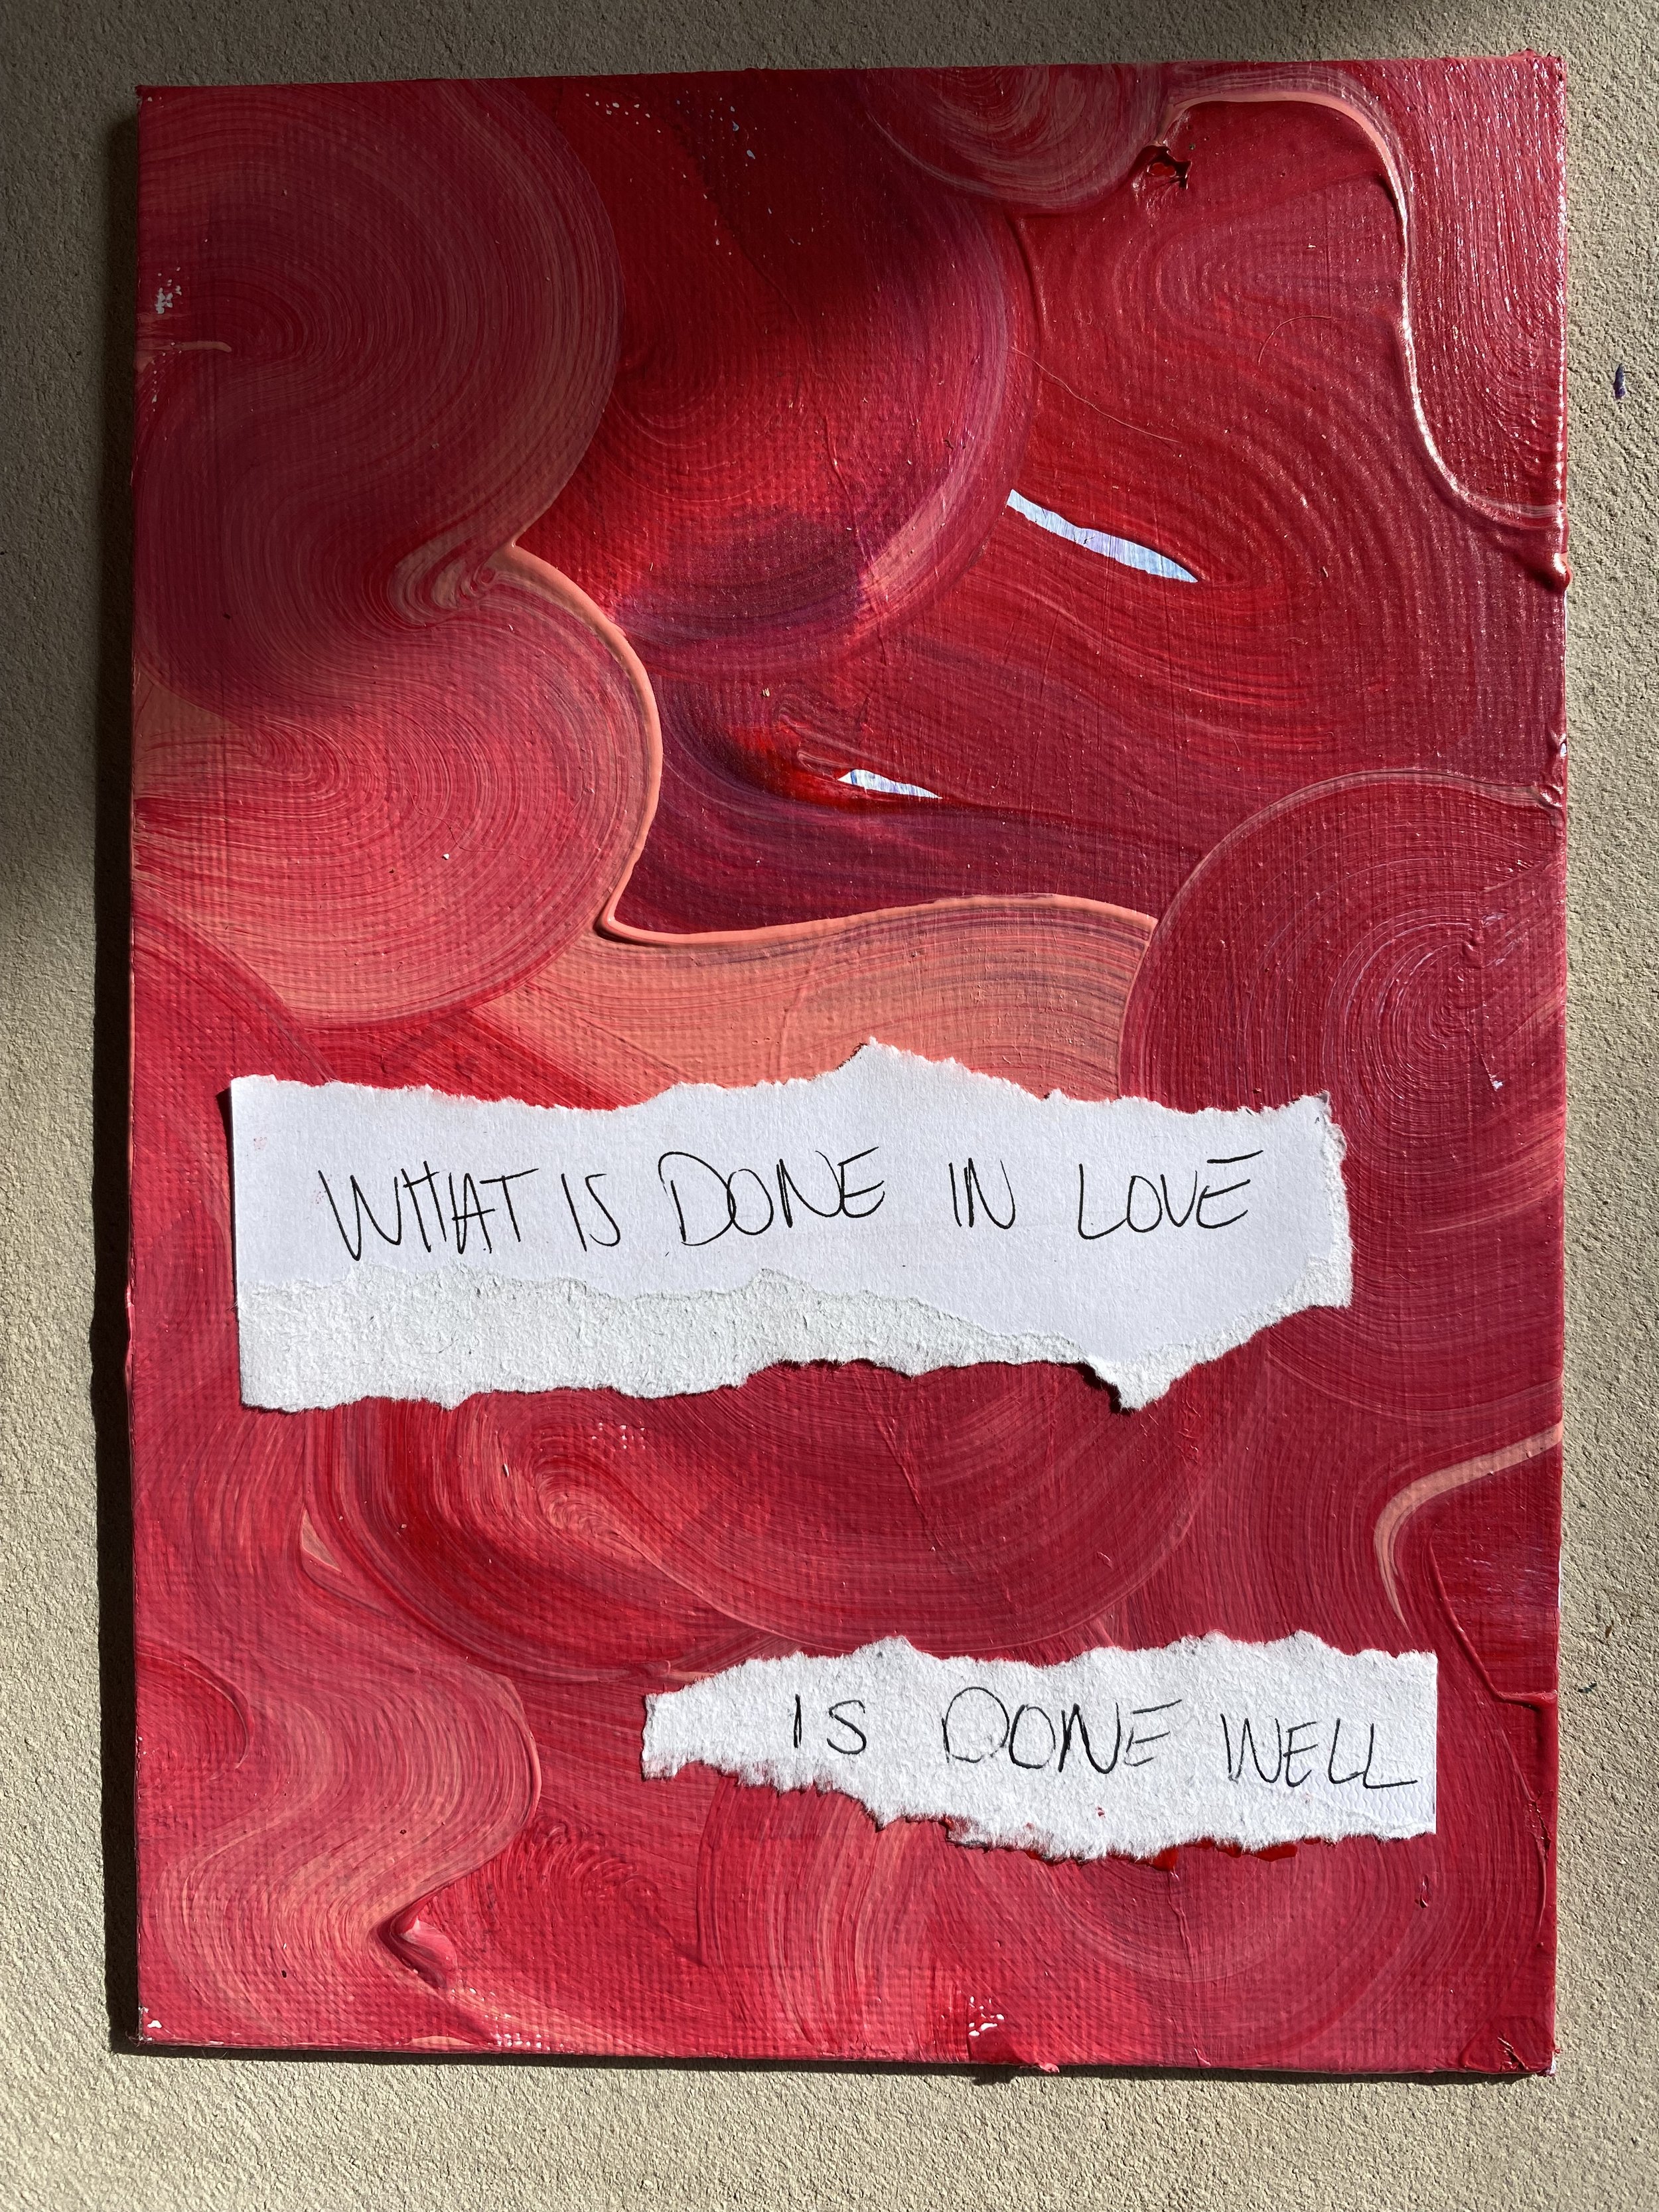 WHAT IS DONE IN LOVE
IS DONE WELL